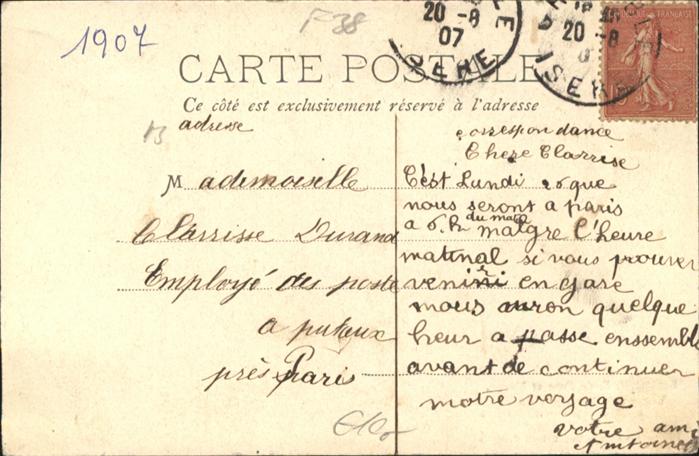 1907
F 38
20 -8
07
ISERE
20 -8
ISERE
CARTE POSTALE
Ce côté est exclusivement réservé à l'adresse
adresse
Mademoiselle
Clarrisse Durand
Employé des poste
a puteux
près Paris
correspondance
Chere Clarrise
C'est Lundi 26 que
nous seront a paris
a 6.h du mat
malgre l'heure
matinal si vous prouver
venir en gare
nous auron quelque
heur a passe enssemble
avant de continuer
notre voyage
votre ami
Antoine